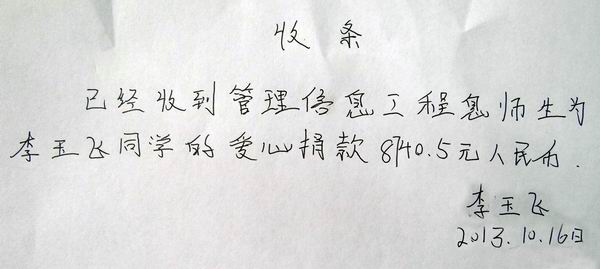 收条
已经收到管理信息工程息师生为
李玉飞同学的爱心捐款8740.5元人民币.
李玉飞
2013.10.16日